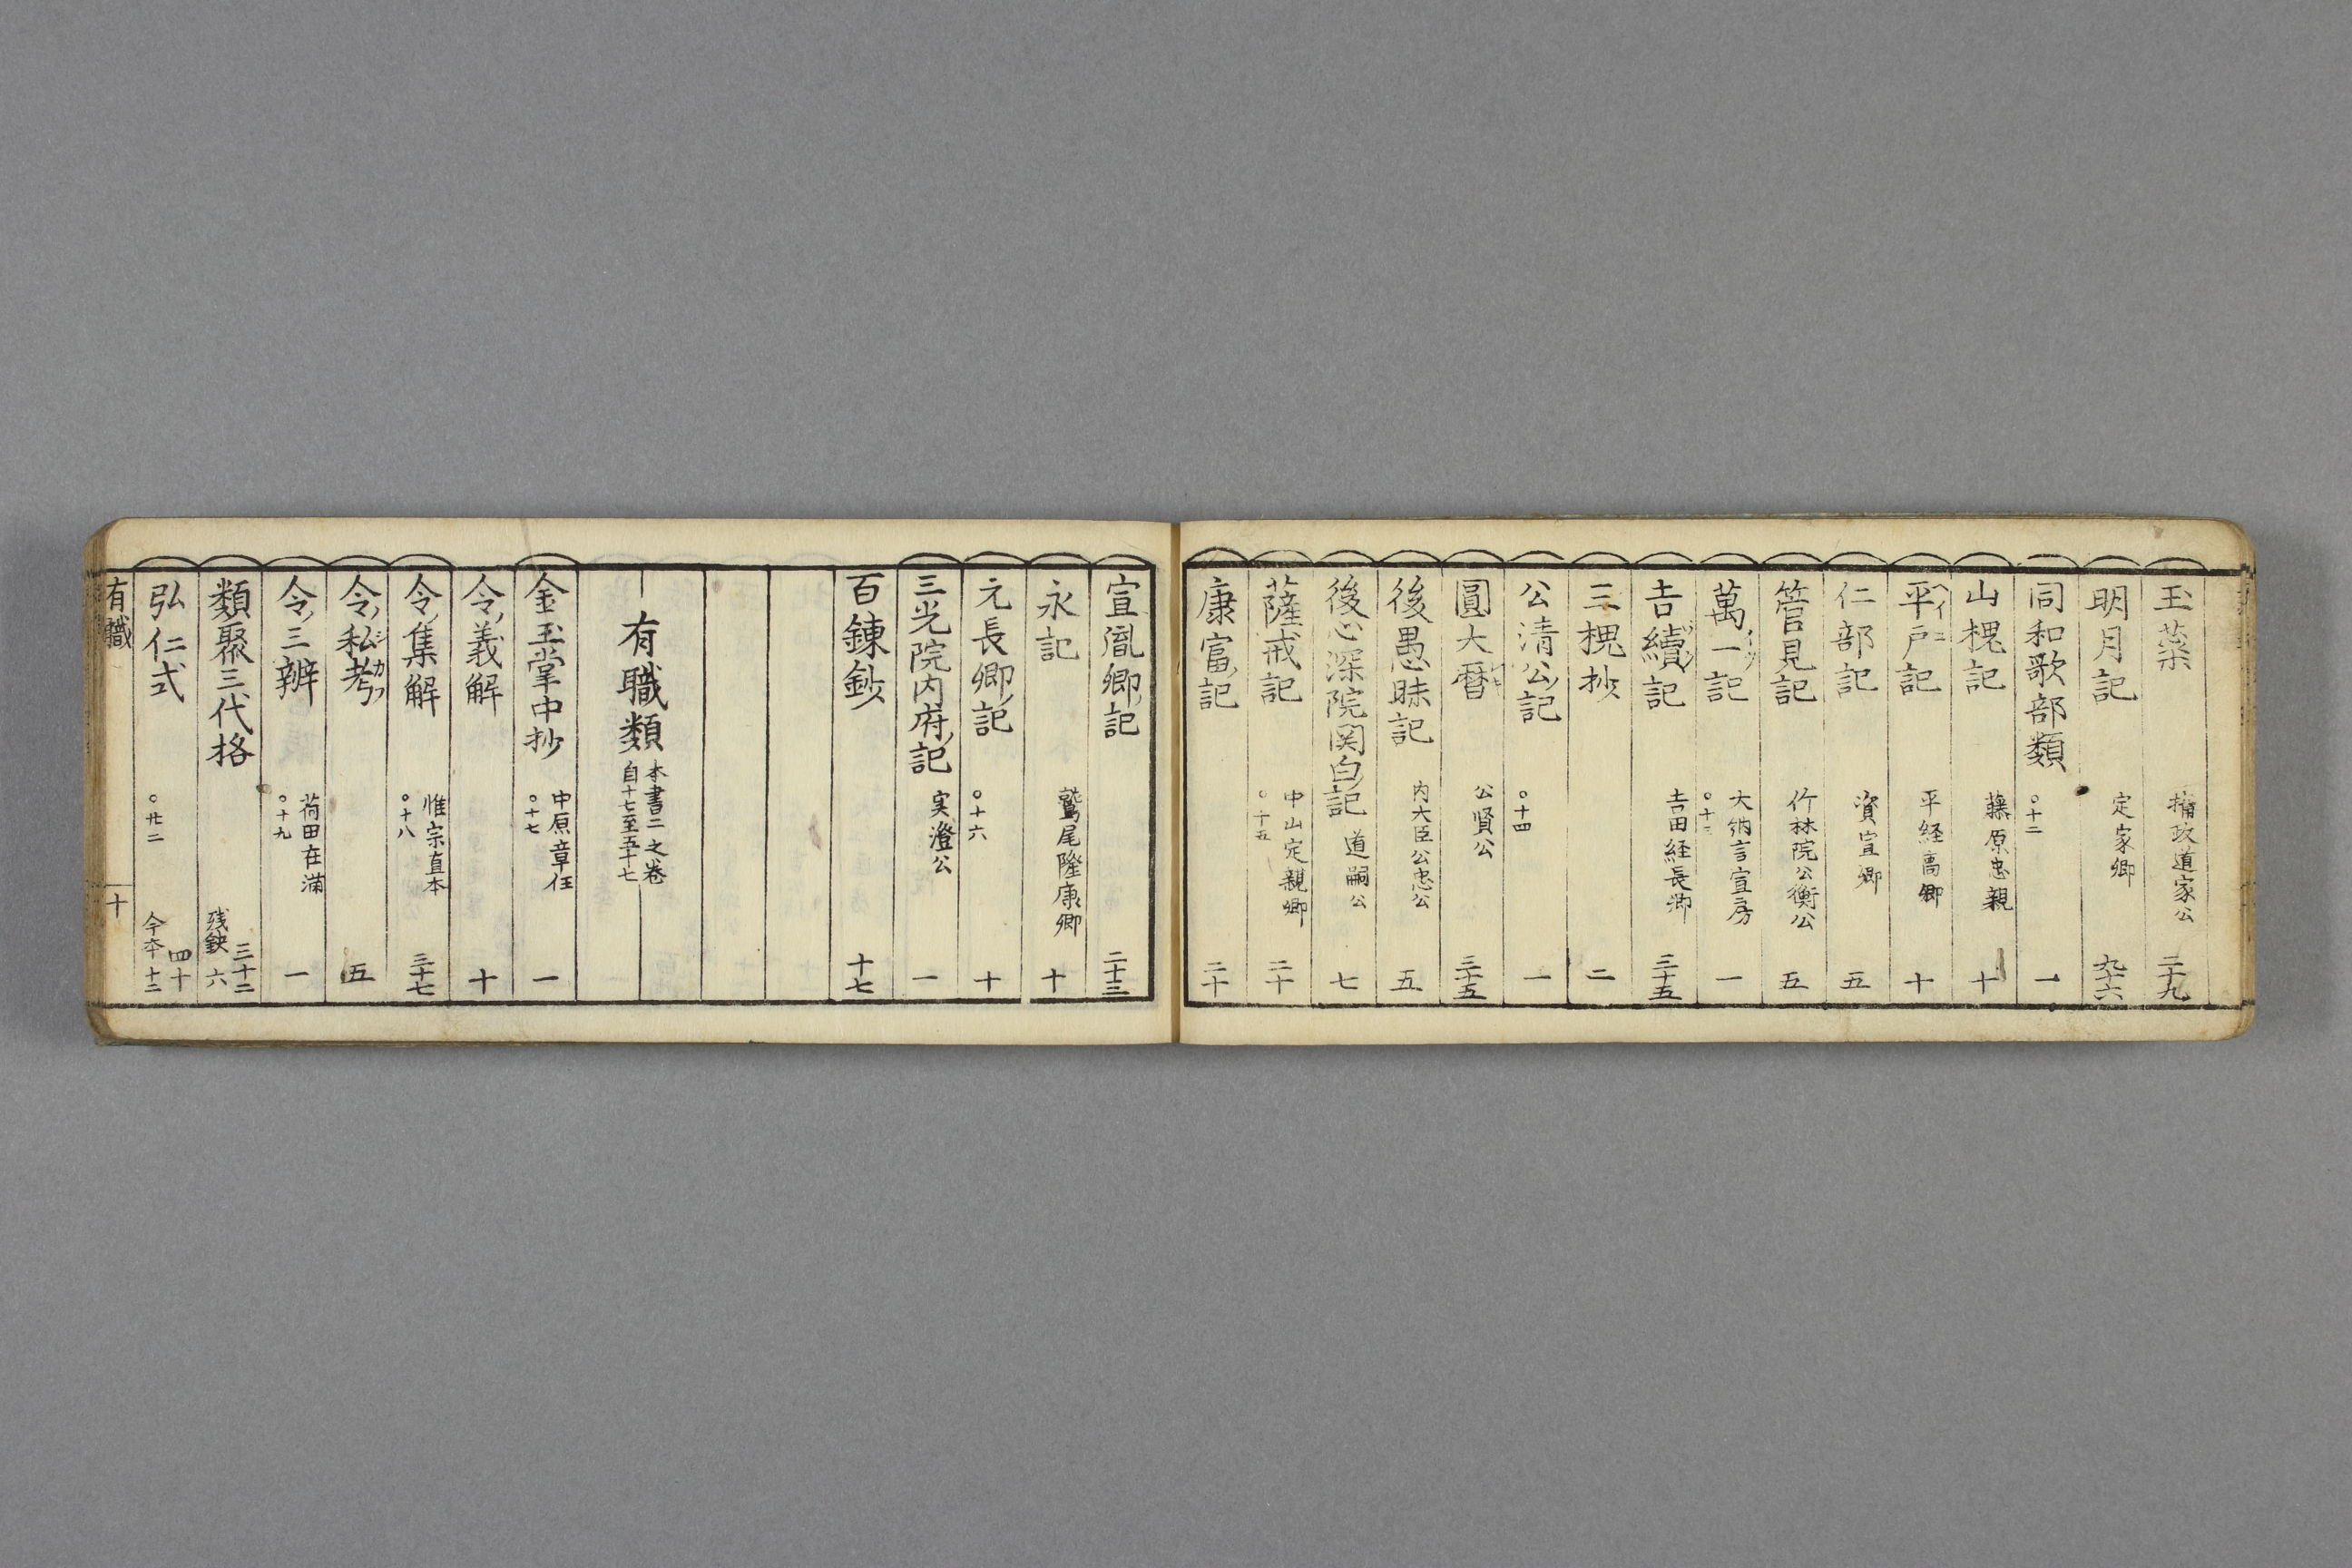 玉蘂 摂政道家公 二十九
明月記 定家卿 九十六
同和歌部類 ○十二 一
山槐記 藤原忠親 十
平戸記 平経高卿 十
仁部記 資宣卿 五
管見記 竹林院公衡公 五
萬一記 大納言宣房 ○十三 一
吉續記 吉田経長卿 三十五
三槐抄 二
公清公ノ記 ○十四 一
圓大暦 公賢公 三十五
後愚昧記 内大臣公忠公 五
後心深院関白ノ記 道嗣公 七
薩戒記 中山定親卿 ○十五 二十
康富ノ記 二十
宣胤卿ノ記 二十三
永記 鷲尾隆康卿 十
元長卿ノ記 ○十六 十
三光院内府ノ記 実澄公 一
百錬鈔 十七
有職類 本書二之巻 自十七至五十七
金玉掌中抄 中原章任 ○十七 一
令ノ義解 十
令ノ集解 惟宗直本 ○十八 三十七
令ノ私考 五
令ノ三辨 荷田在満 ○十九 一
類聚三代格 三十二 残缺 六
弘仁式 ○廿二 四十 今本十二
有職 十